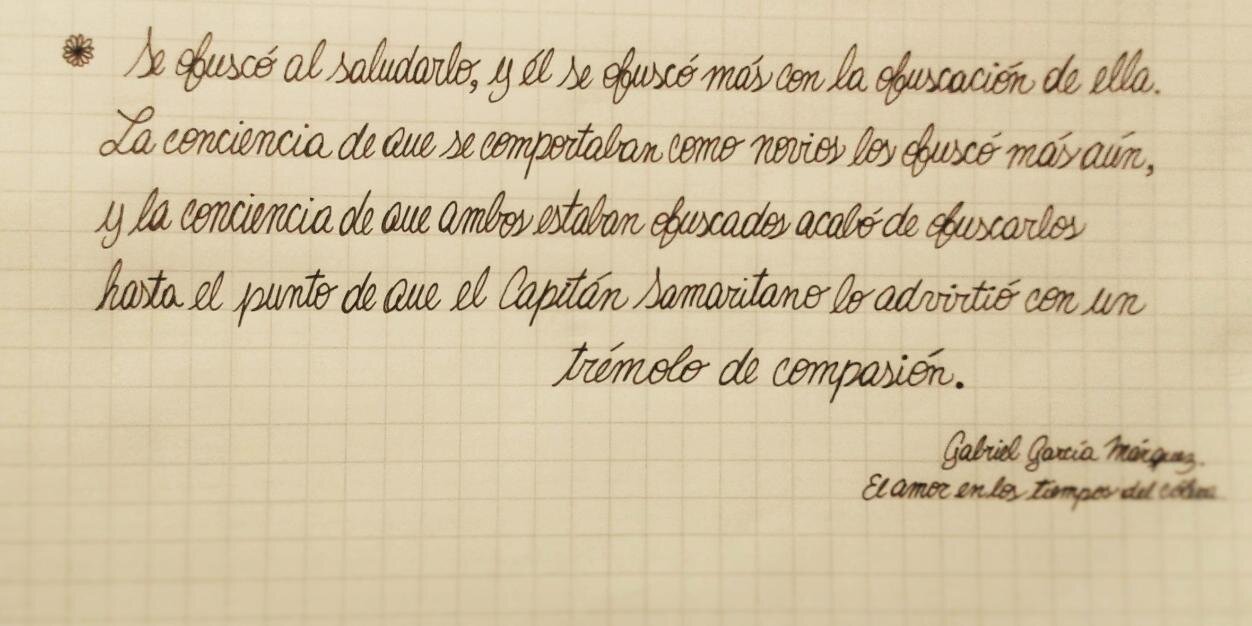 Se ofuscó al saludarlo, y él se ofuscó más con la ofuscación de ella.
La conciencia de que se comportaban como novios los ofuscó más aún,
y la conciencia de que ambos estaban ofuscados acabó de ofuscarlos
hasta el punto de que el Capitán Samaritano lo advirtió con un
trémolo de compasión.
Gabriel García Márquez.
El amor en los tiempos del cólera